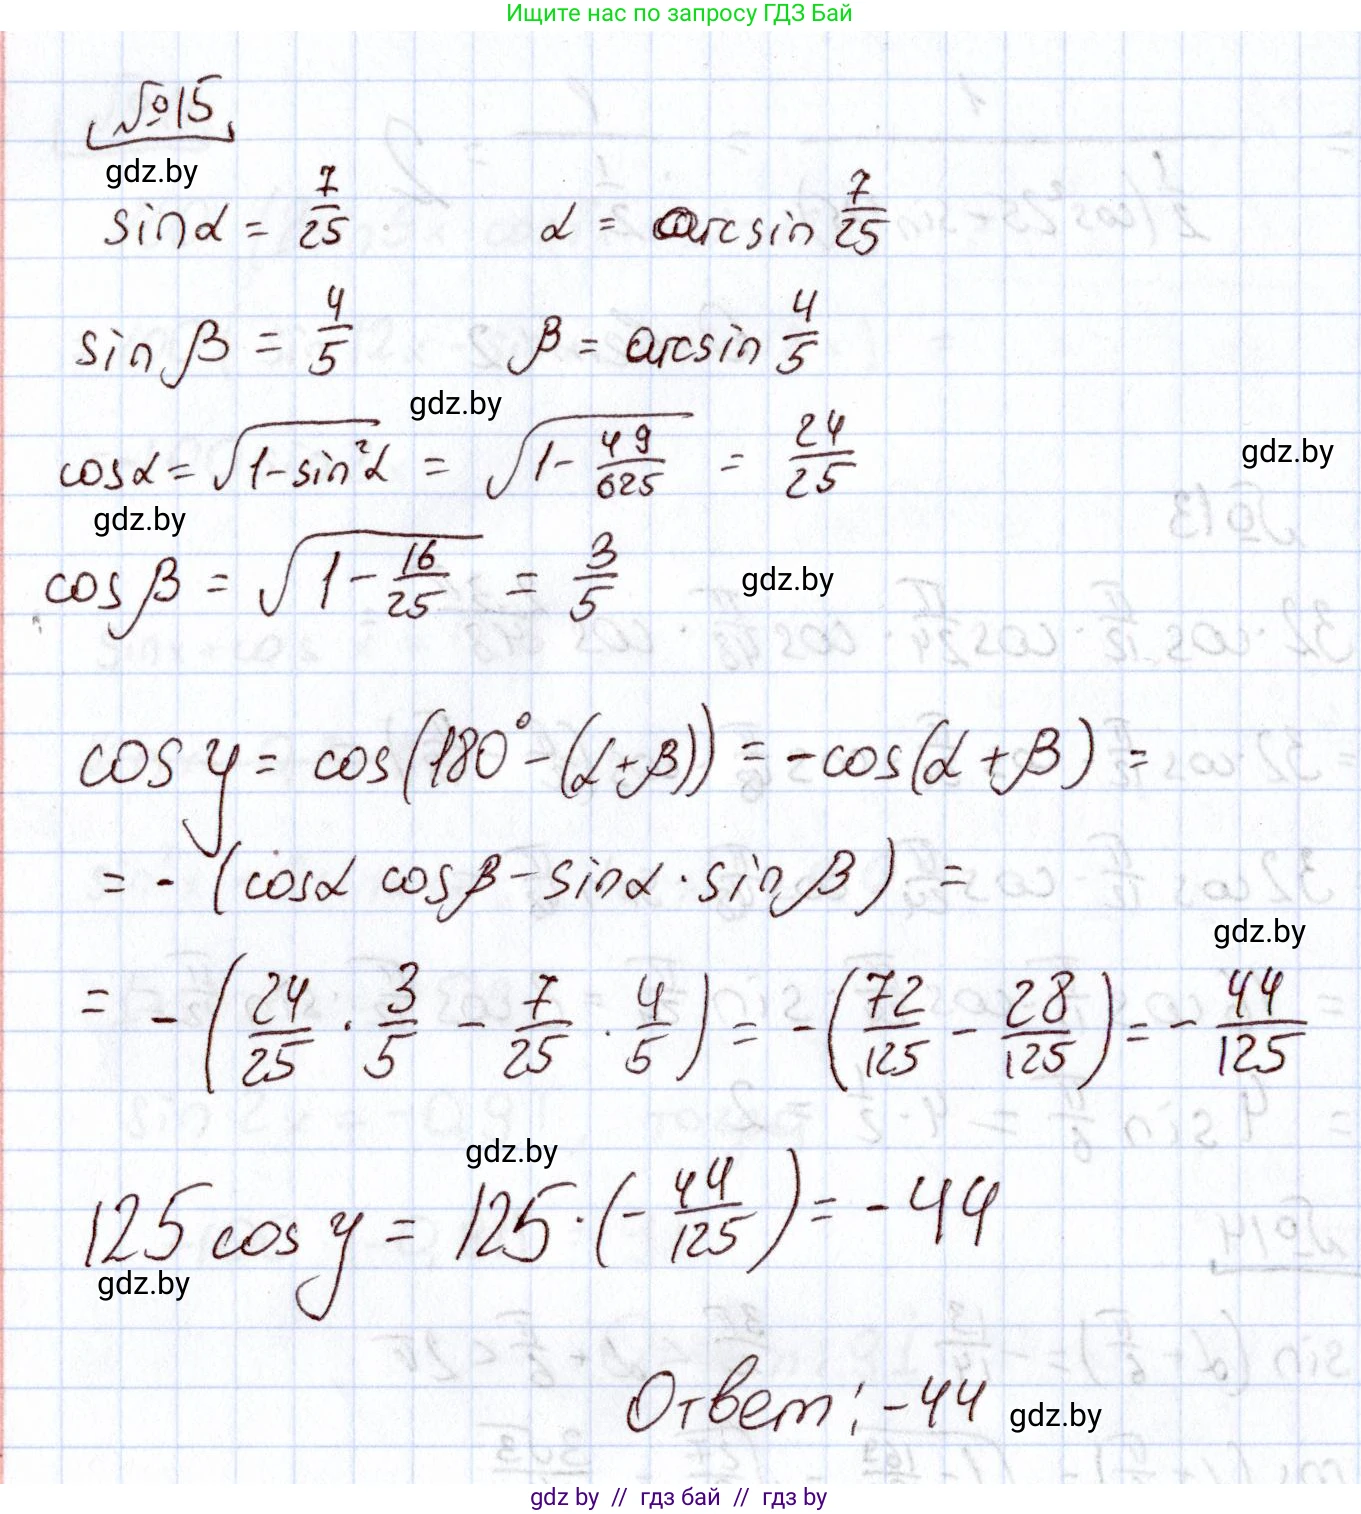 Ищите нас по запросу ГДЗ Бай
№15
gdz.by
sinα = 7/25    α = arcsin 7/25
sin β = 4/5    β = arcsin 4/5
gdz.by
cosα = √(1-sin²α) = √(1 - 49/625) = 24/25
gdz.by
gdz.by
cosβ = √(1 - 16/25) = 3/5
gdz.by
cos y = cos(180° - (α+β)) = -cos(α+β) =
= - (cosα cosβ - sinα · sinβ) =
gdz.by
= - (24/25 · 3/5 - 7/25 · 4/5) = - (72/125 - 28/125) = - 44/125
gdz.by
125 cos y = 125 · (- 44/125) = -44
gdz.by
Ответ: -44
gdz.by
gdz by // гдз бай // гдз by